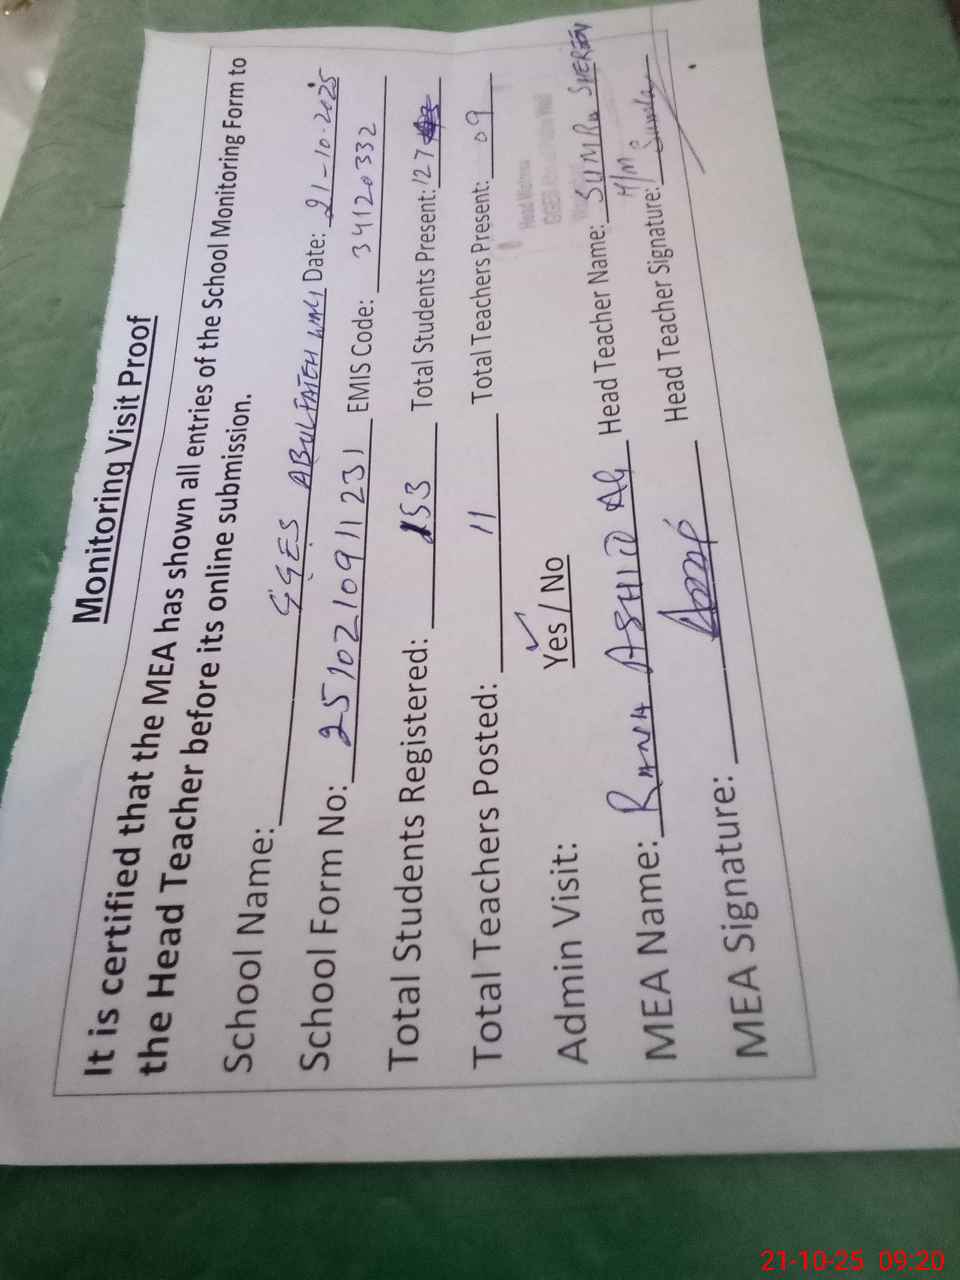 Monitoring Visit Proof
It is certified that the MEA has shown all entries of the School Monitoring Form to
the Head Teacher before its online submission.
School Name: GGES ABULFATEH Date: 21-10-2025
School Form No: 2510210911231 EMIS Code: 34120332
Total Students Registered: 153 Total Students Present: 127
Total Teachers Posted: 11 Total Teachers Present: 09
Admin Visit: Yes / No
Head Mistress
MEA Name: RANA Head Teacher Name: SUMRA
MEA Signature: Head Teacher Signature:
H/M
21-10-25 09:20